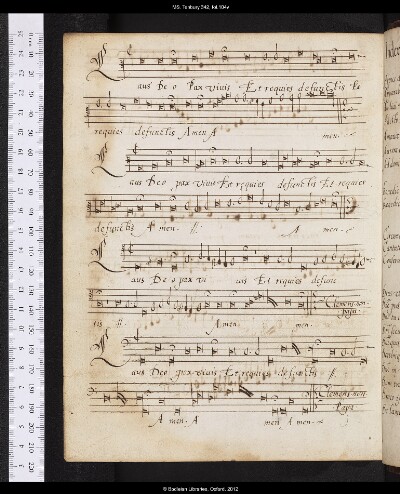 MS. Tenbury 342, fol.104v
Laus Deo Pax vivis Et requies defunctis Et
requies defunctis Amen A men.
Laus Deo pax vivis Et requies defunctis Et requies
defunctis A men. ij. A men.
Laus Deo pax vi vis Et requies defunc
tis ij. Amen. men. Clemens non papa.
Laus Deo pax vivis Et requies defunctis ij.
A men. A men A men. Clemens non Papa.
© Bodleian Libraries, Oxford, 2012